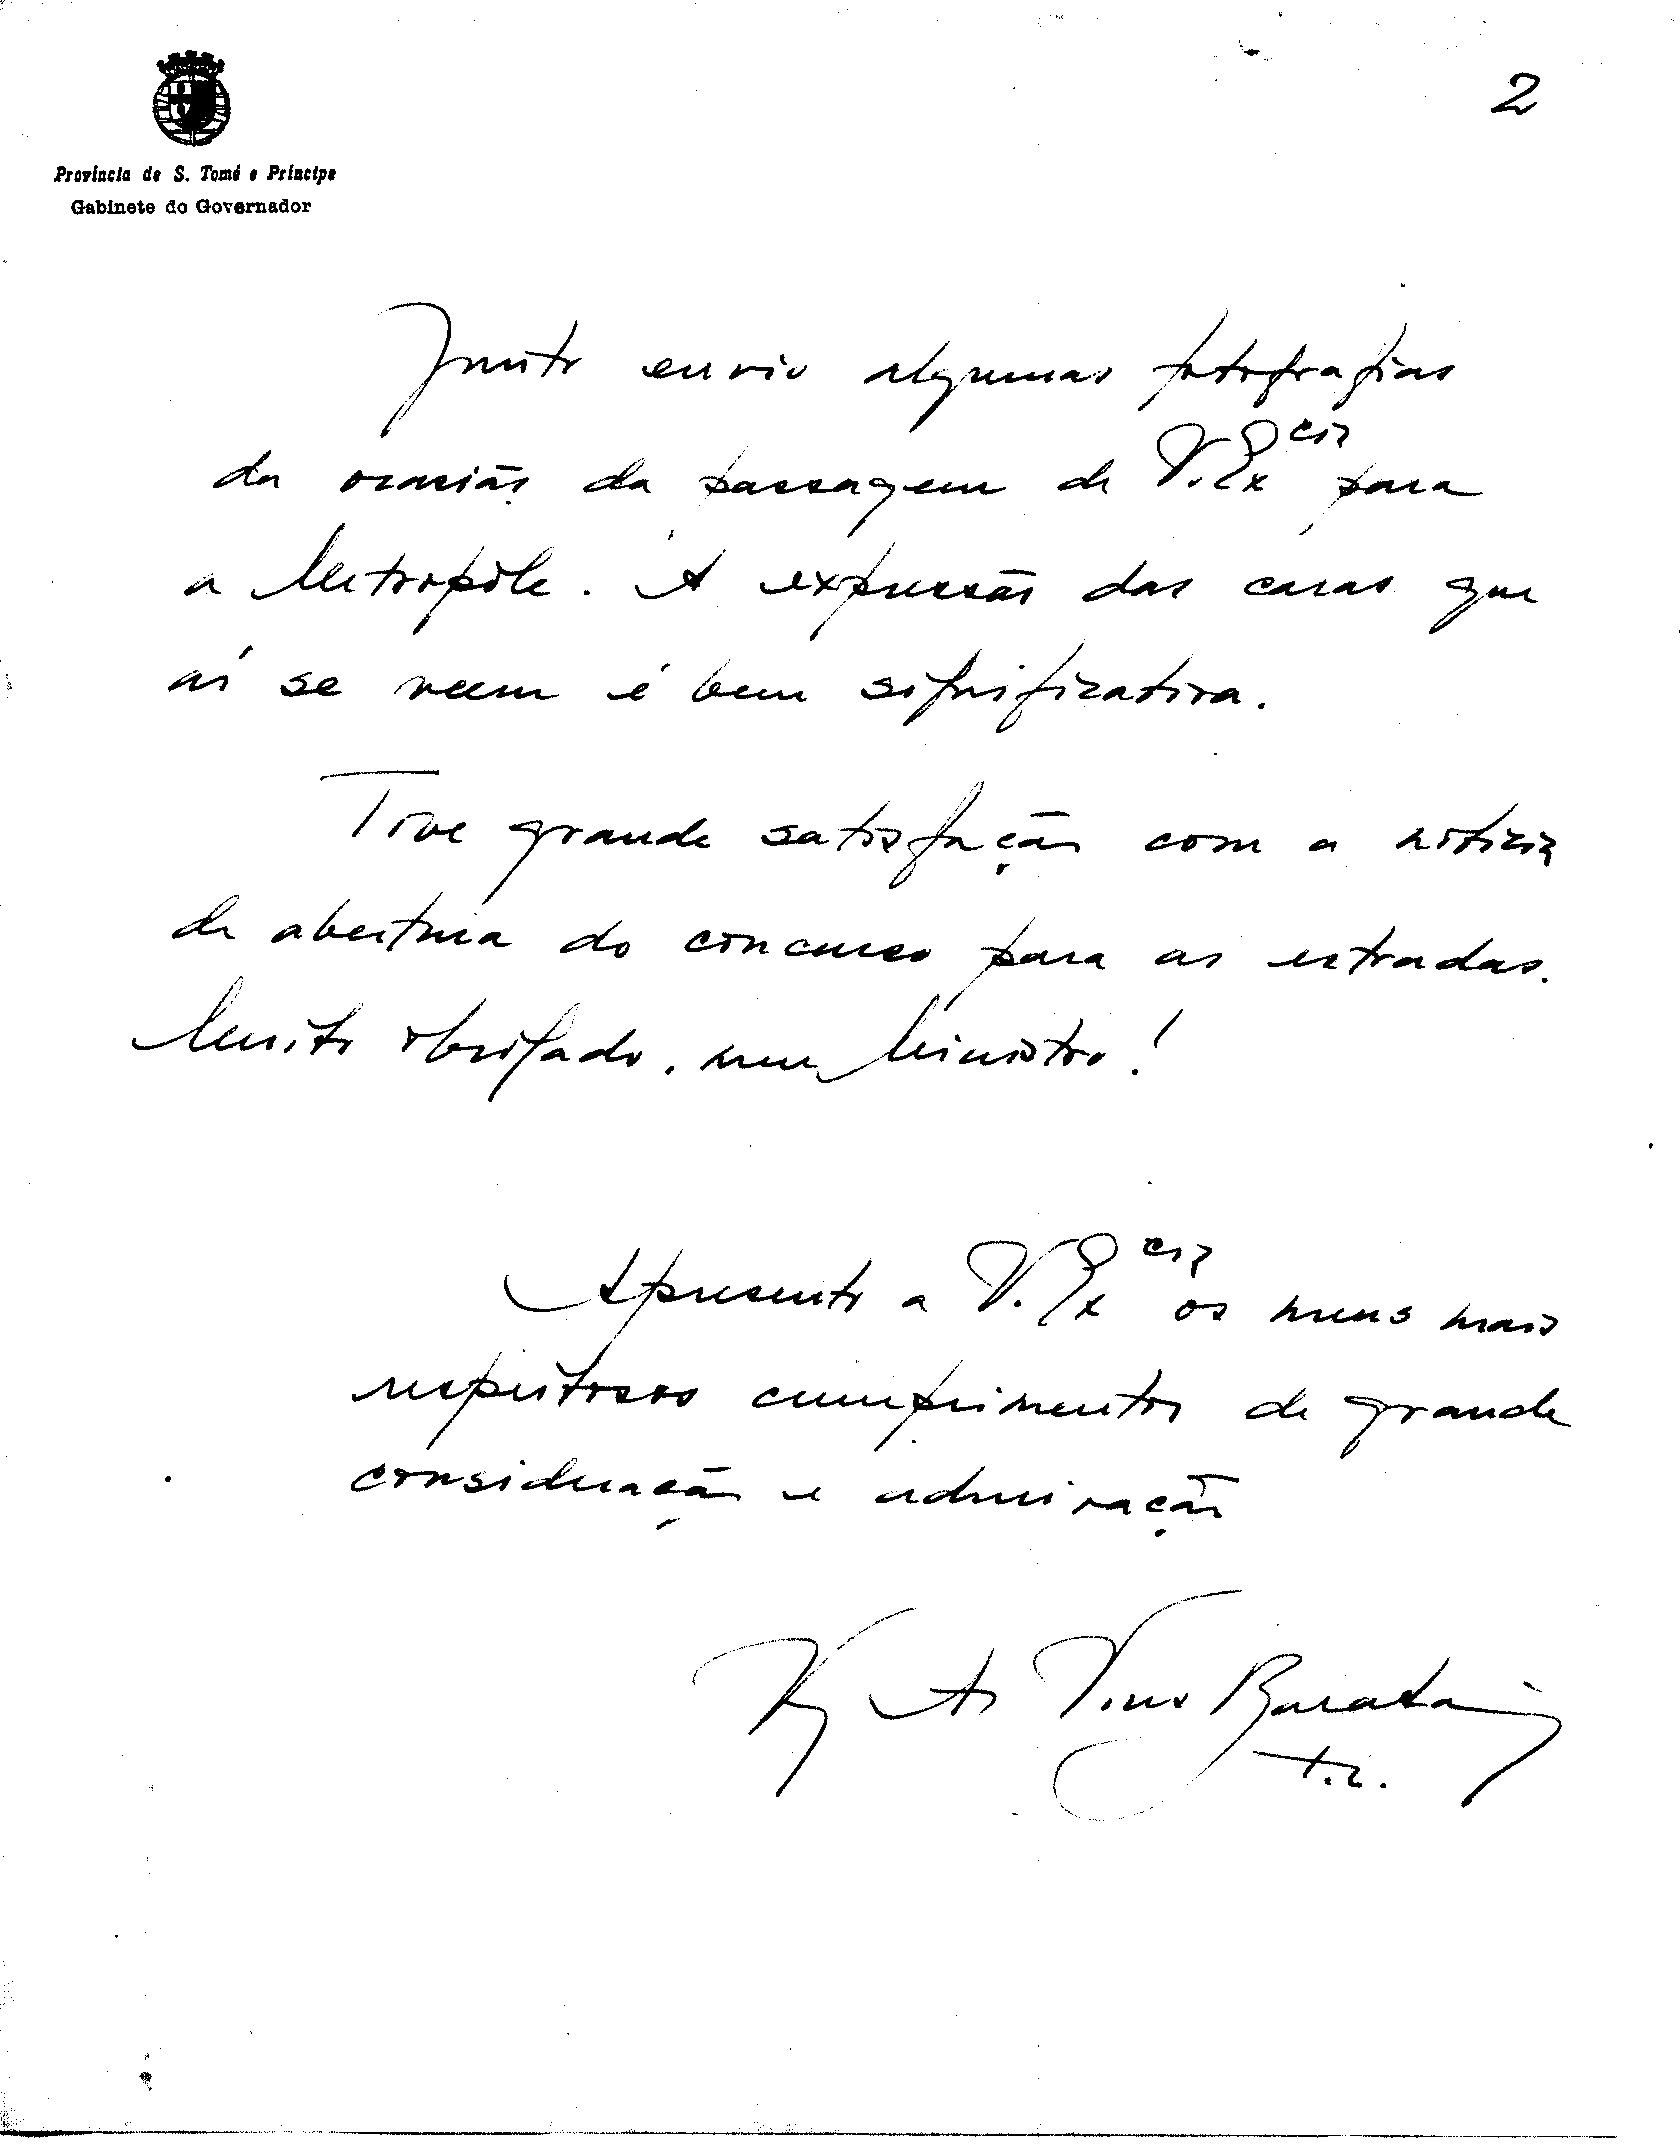 2
Província de S. Tomé e Príncipe
Gabinete do Governador
Junto envio algumas fotografias
da ocasião da passagem de V. Ex cia para
a Metrópole. A expressão das caras que
aí se veem é bem significativa.
Tive grande satisfação com a notícia
de abertura do concurso para as estradas.
Muito obrigado, meu Ministro!
Apresento a V. Ex cia os meus mais
respeitosos cumprimentos de grande
consideração e admiração
Barata